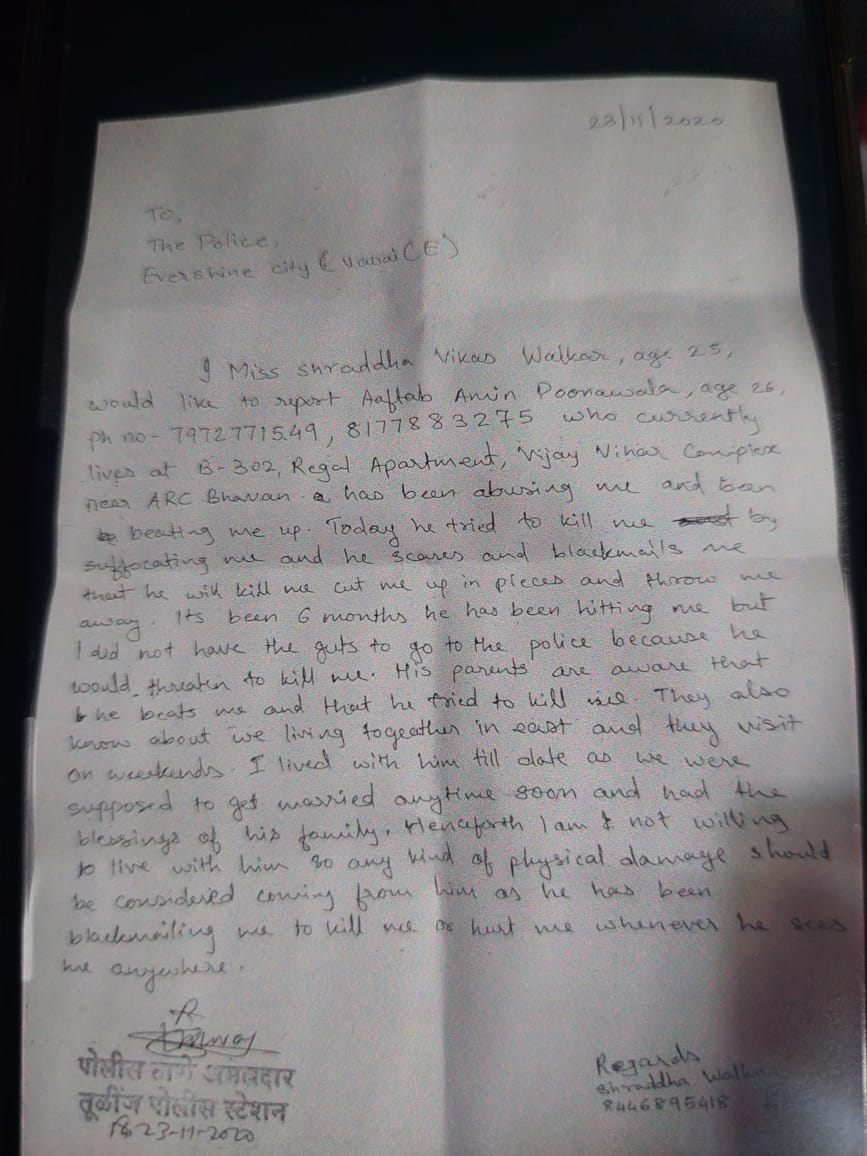 23/11/2020
To,
The Police,
Evershine city (Vasai(E)
I Miss Shraddha Vikas Walkar, age 25,
would like to report Aaftab Amin Poonawala, age 26,
ph no- 7972771549, 8177883275 who currently
lives at B-302, Regal Apartment, Vijay Vihar Complex
near ARC Bhavan. has been abusing me and been
beating me up. Today he tried to kill me by
suffocating me and he scares and blackmails me
that he will kill me cut me up in pieces and throw me
away. Its been 6 months he has been hitting me but
I did not have the guts to go to the police because he
would threatin to kill me. His parents are aware that
he beats me and that he tried to kill me. They also
know about we living togeather in east and they visit
on weekends. I lived with him till date as we were
supposed to get married anytime soon and had the
blessings of his family. Henceforth I am not willing
to live with him so any kind of physical damage should
be considered coming from him as he has been
blackmailing me to kill me or hurt me whenever he sees
me anywhere.
पोलीस ठाणे अंमलदार
तूळींज पोलीस स्टेशन
23-11-2020
Regards
Shraddha Walkar
8446895418